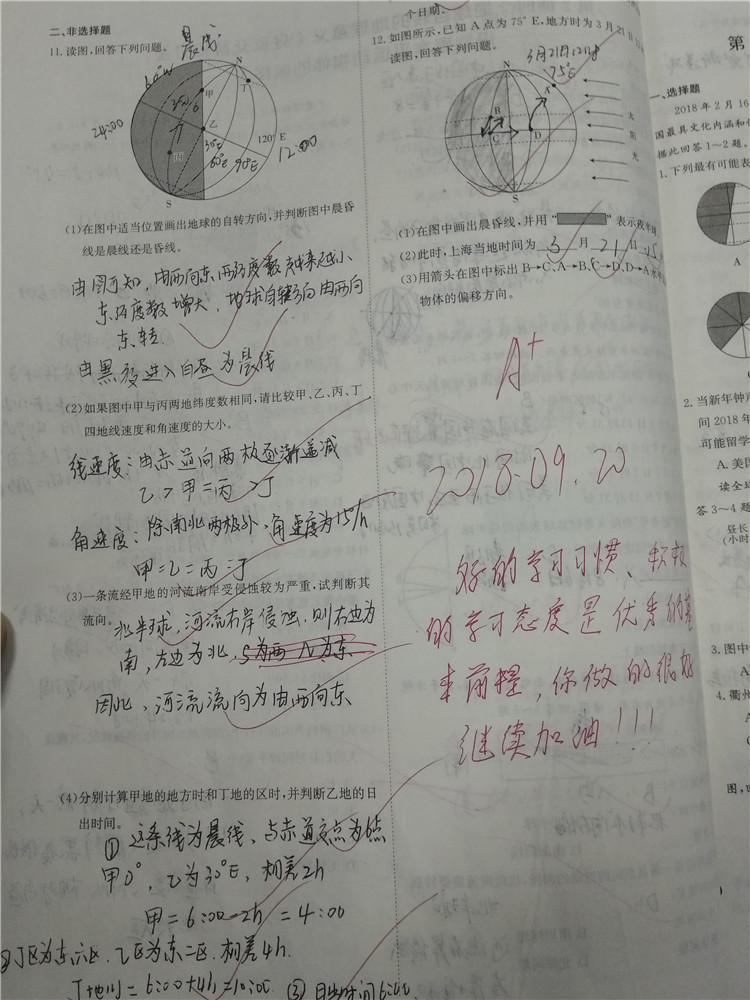 二、非选择题
11.读图,回答下列问题。
晨线
60°W
N
甲
丁
乙
24:00
丙
30°E
60°E
90°E
120°E
12:00
S
(1)在图中适当位置画出地球的自转方向,并判断图中晨昏
线是晨线还是昏线。
由图可知,由西向东,西经度数越来越小、
东经度数增大,地球自转方向由西向
东转
由黑夜进入白昼为晨线
(2)如果图中甲与丙两地纬度数相同,请比较甲、乙、丙、丁
四地线速度和角速度的大小。
线速度:由赤道向两极逐渐递减
乙>甲=丙>丁
角速度:除南北两极外、角速度为15°/h
甲=乙=丙=丁
(3)一条流经甲地的河流南岸受侵蚀较为严重,试判断其
流向。
北半球,河流右岸侵蚀,则右边为
南,左边为北,S为西 N为东
因此、河流流向为由西向东
(4)分别计算甲地的地方时和丁地的区时,并判断乙地的日
出时间。
① 这条线为晨线、与赤道交点为6点
甲0°,乙为30°E,相差2h
甲=6:00-2h=4:00
②丁区为东六区,乙区为东二区.相差4h.
丁地时=6:00+4h=10:00. ③日出时间6:00
个日期。
12.如图所示,已知A点为75°E,地方时为3月21日12
读图,回答下列问题。
3月21日12时
75°E
N
A
B
C
D
太
阳
光
S
(1)在图中画出晨昏线,并用“ ”表示夜半球
(2)此时,上海当地时间为 3 月 21 日 15
(3)用箭头在图中标出B→C、A→B、C→D、D→A水平
物体的偏移方向。
A+
2018.09.20
好的学习习惯、
的学习态度是优秀的
前提,你做的很好
继续加油!!!
第
一、选择题
2018年2月16
国最具文化内涵和
据此回答1~2题。
1.下列最有可能表
A
C
2.当新年钟声
间2018年
可能留学
A.美国
读全球
答3~4题
昼长
(小时
3.图中
A
C
4.衢州
A
C
图,